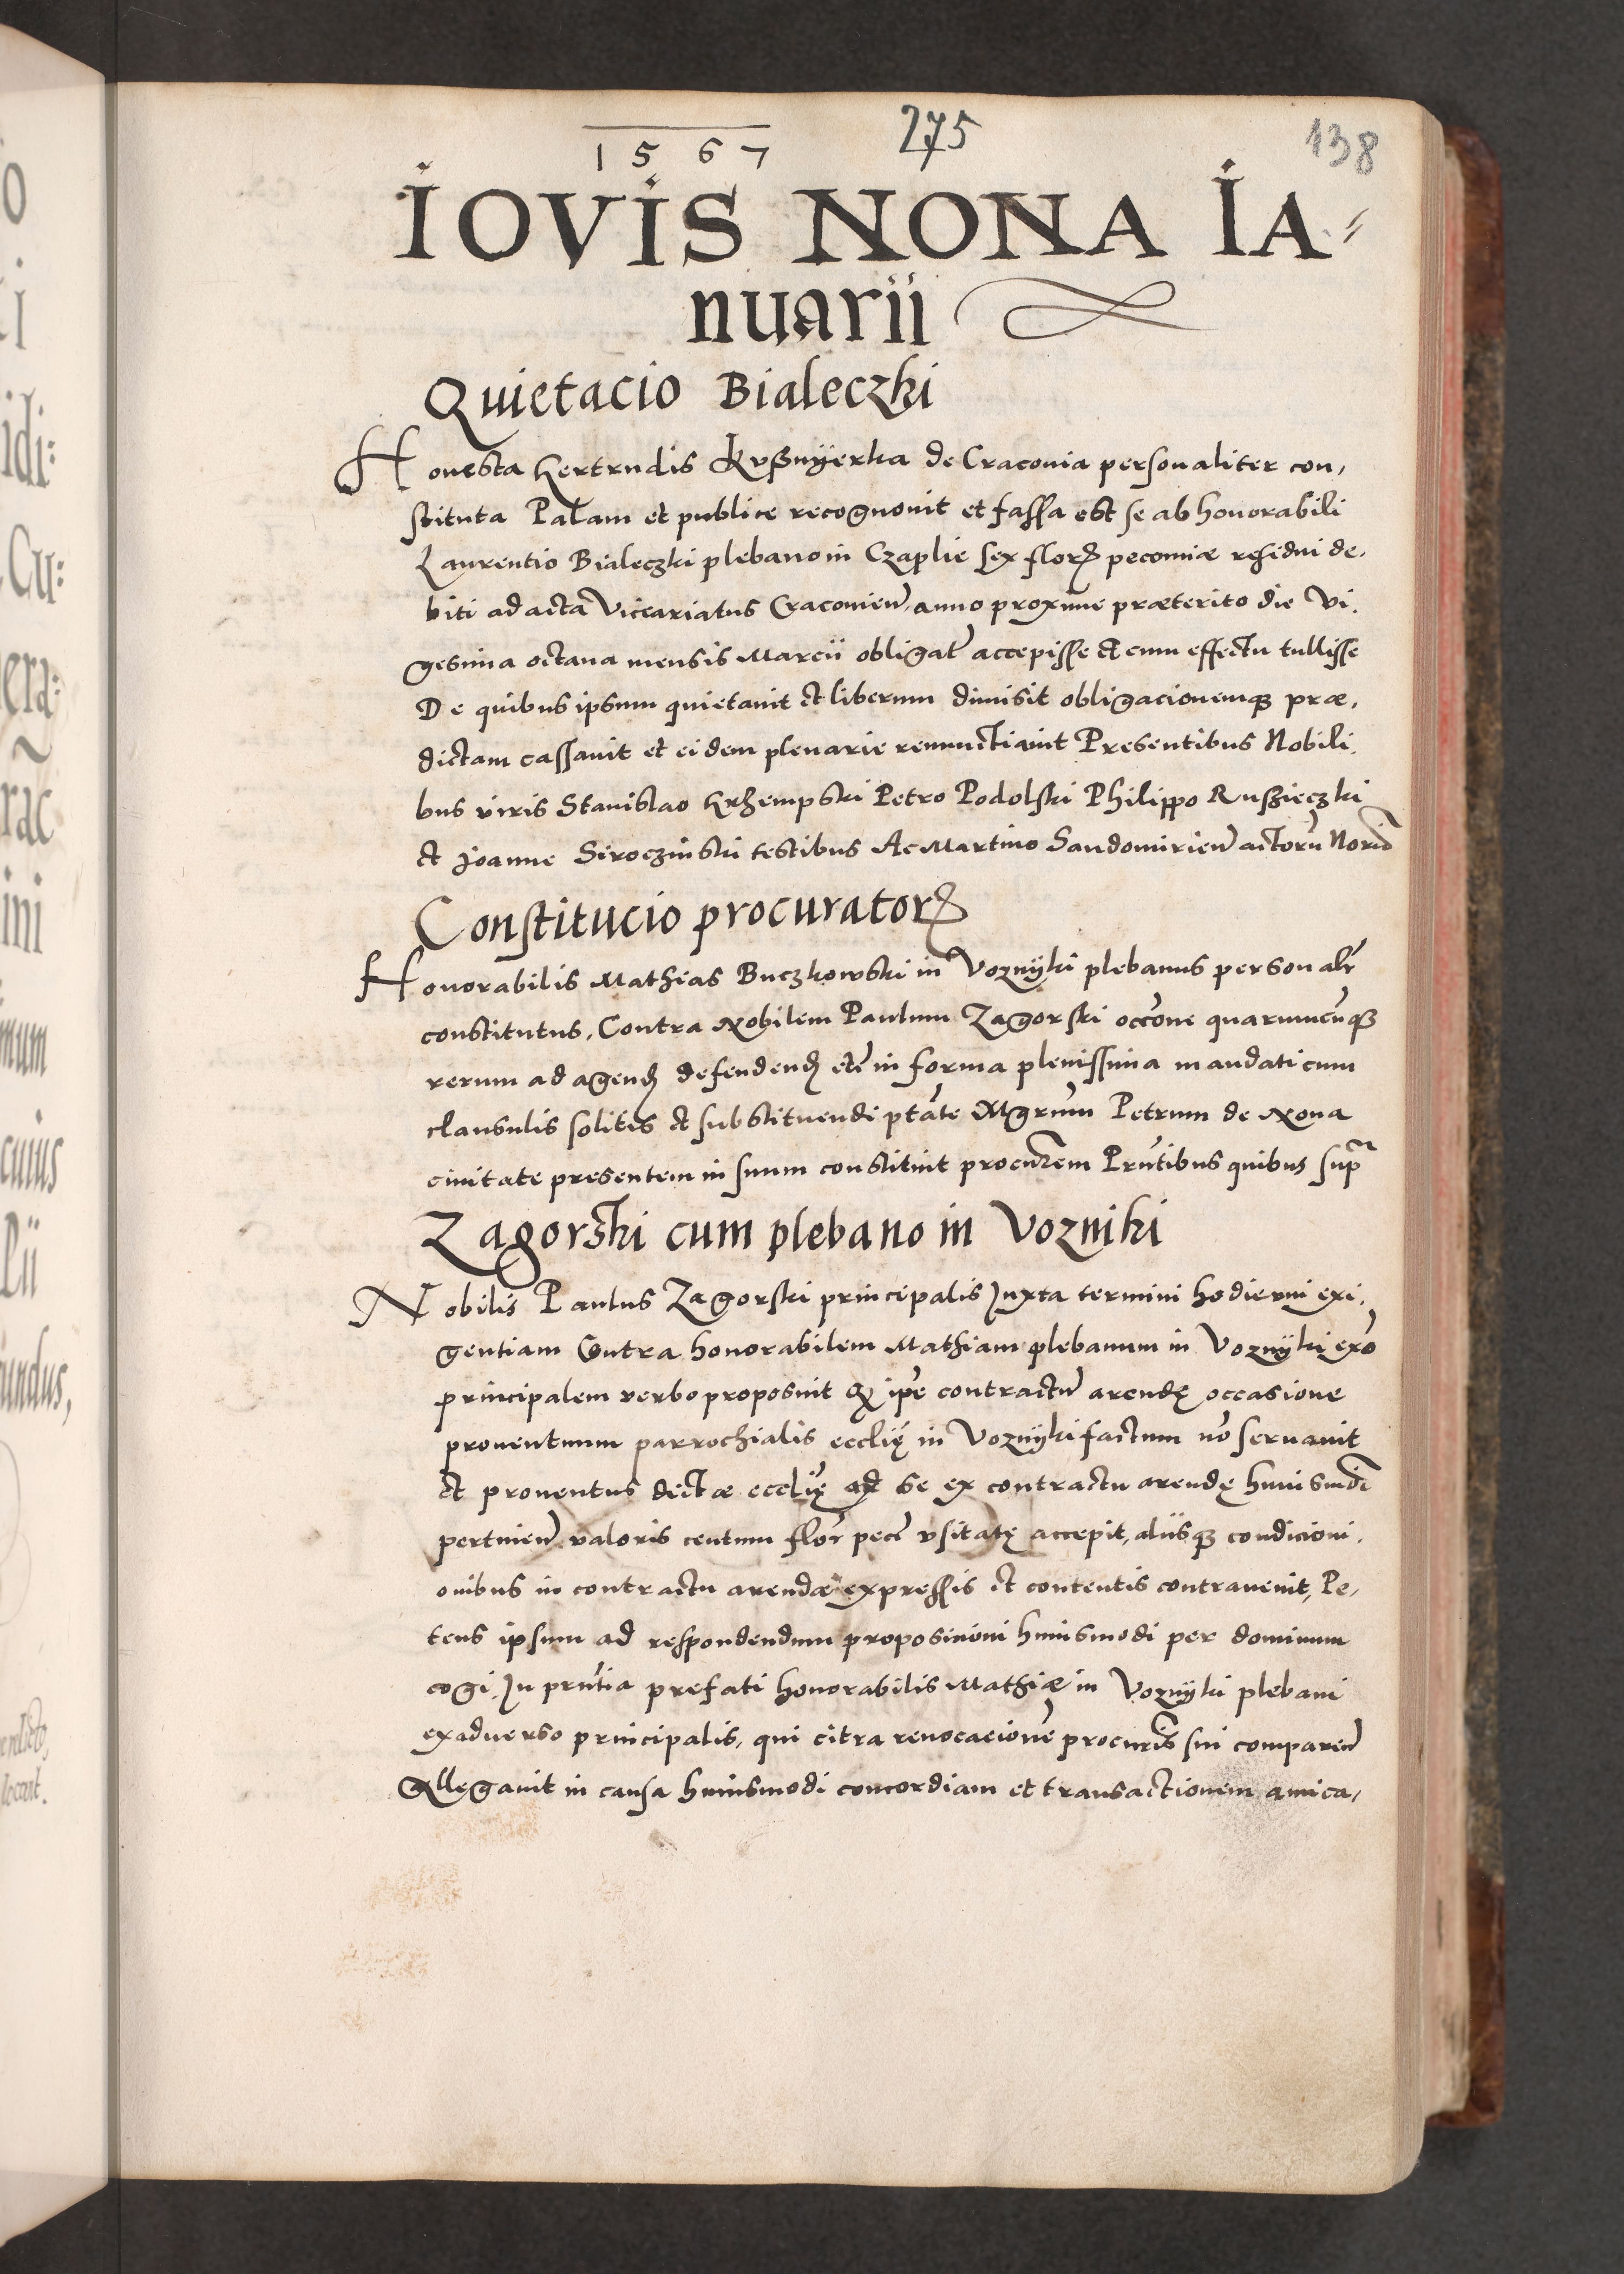 1567 275 138
IOVIS NONA IA=
nuarii
Quietacio Bialeczki
Honesta Hertrudis Kvßnÿerka de Cracouia personaliter con,
stituta Palam et publice recognouit et fassa est se ab honorabili
Laurentio Bialeczki plebano in Czaplie sex florꝝ pecuniæ residui de,
biti ad acta Viccariatus Cracouien̄ anno proxime præterito die Vi,
gesima octaua mensis Marcii obligat̄ accepisse et cum effectu tullisse
De quibus ipsum quietauit et liberum dimisit obligacionemqꝫ præ,
dictam cassauit et eidem plenarie renunctiauit Presentibus Nobili,
bus viris Stanislao Krzempski Petro Podolski Philippo Rußieczki
et Joanne Siroczinski testibus Ac Martino Sandomirien̄ actorū Norio
Constitucio procuratorꝝ
Honorabilis Mathias Buczkowski in Voznÿki plebanus personalr̄
constitutus, Contra Nobilem Paulum Zagorski occōne quarumcūqꝫ
rerum ad agendꝫ defendendꝫ etc̄ in forma plenissima mandati cum
clausulis solitis et substituendi ptāte Mgrūm Petrum de Noua
ciuitate presentem in suum constituit procurēm Prn̄tibus quibus supra
Zagorski cum plebano in Vozniki
Nobilis Paulus Zagorski principalis Juxta termini hodierni exi,
gentiam Contra honorabilem Mathiam plebanum in Voznÿki exō
principalem verbo proposuit qꝫ ipē contractū arendę occasione
prouentuum parrochialis ecclię in Voznÿki factum nō seruauit
et prouentus dictæ ecclię ad se ex contractu arendę huiusmōi
pertinen̄ valoris centum flor̄ pec̄ vsitatę accepit, aliisqꝫ condicioni,
onibus in contractu arendæ expressis et contentis contrauenit, Pe,
tens ipsum ad respondendum proposicioni huiusmodi per dominum
cogi, In prn̄tia prefati honorabilis Mathiæ in Voznÿki plebani
ex aduerso principalis, qui citra reuocacionē procuris̄ sui comparen̄
Allegauit in causa huiusmodi concordiam et transactionem amica,